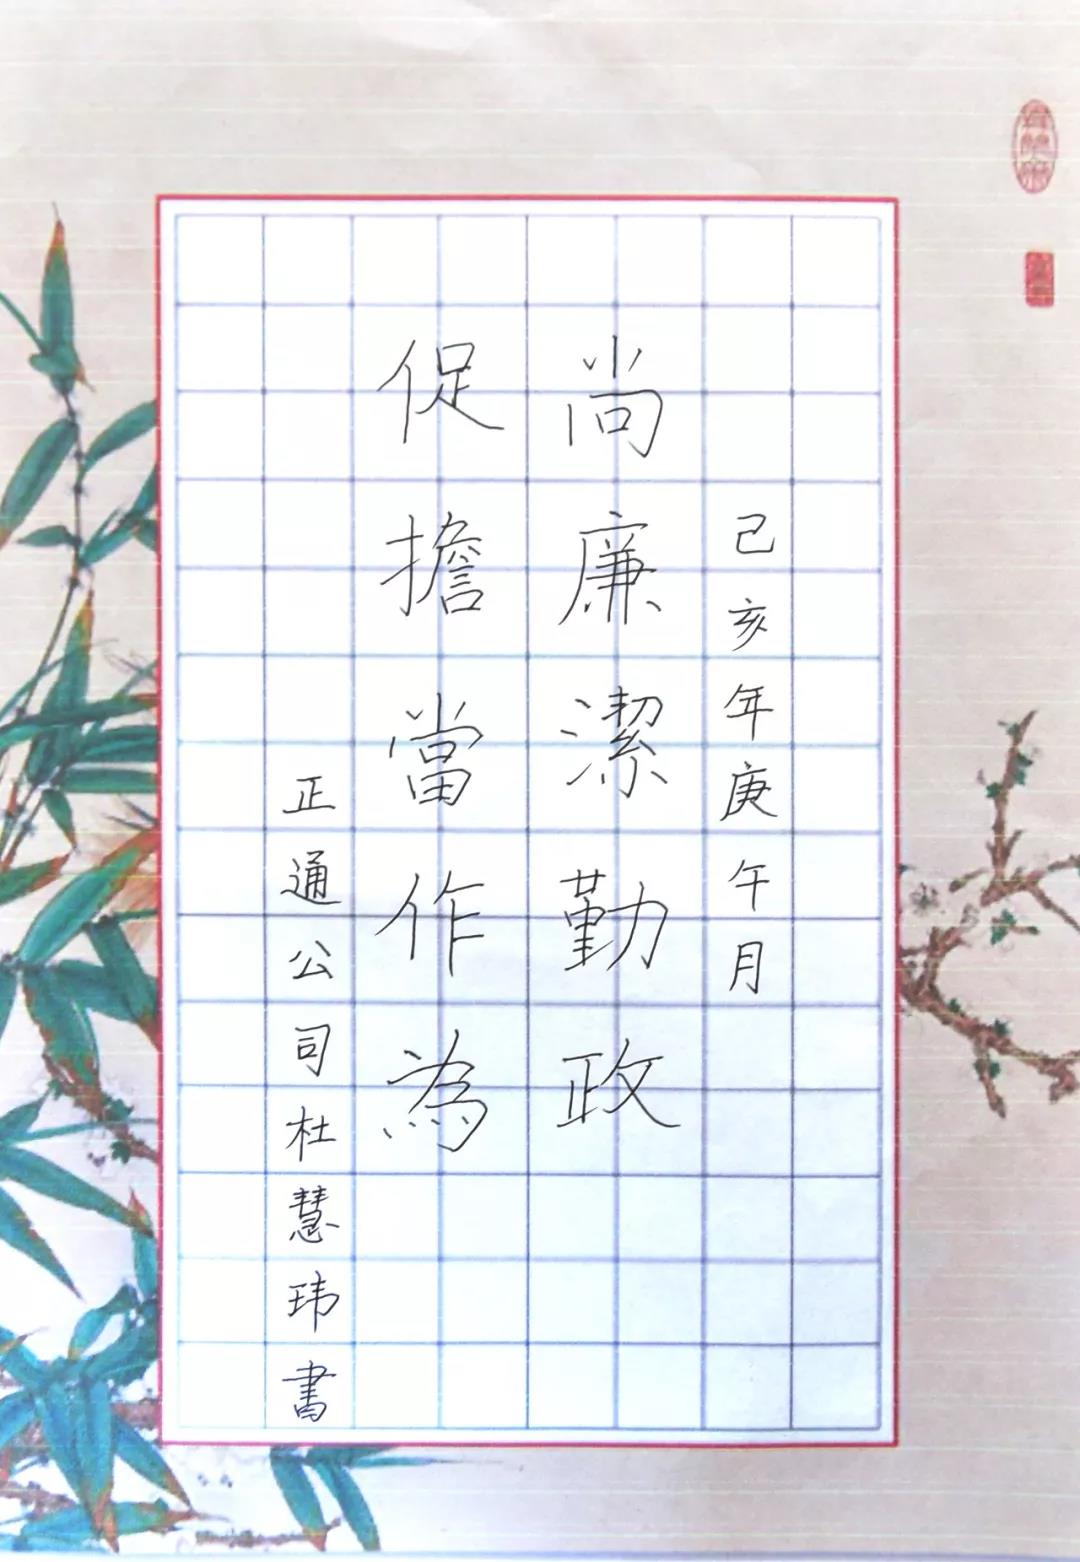 己亥年庚午月
尚廉潔勤政
促擔當作為
正通公司杜慧玮書